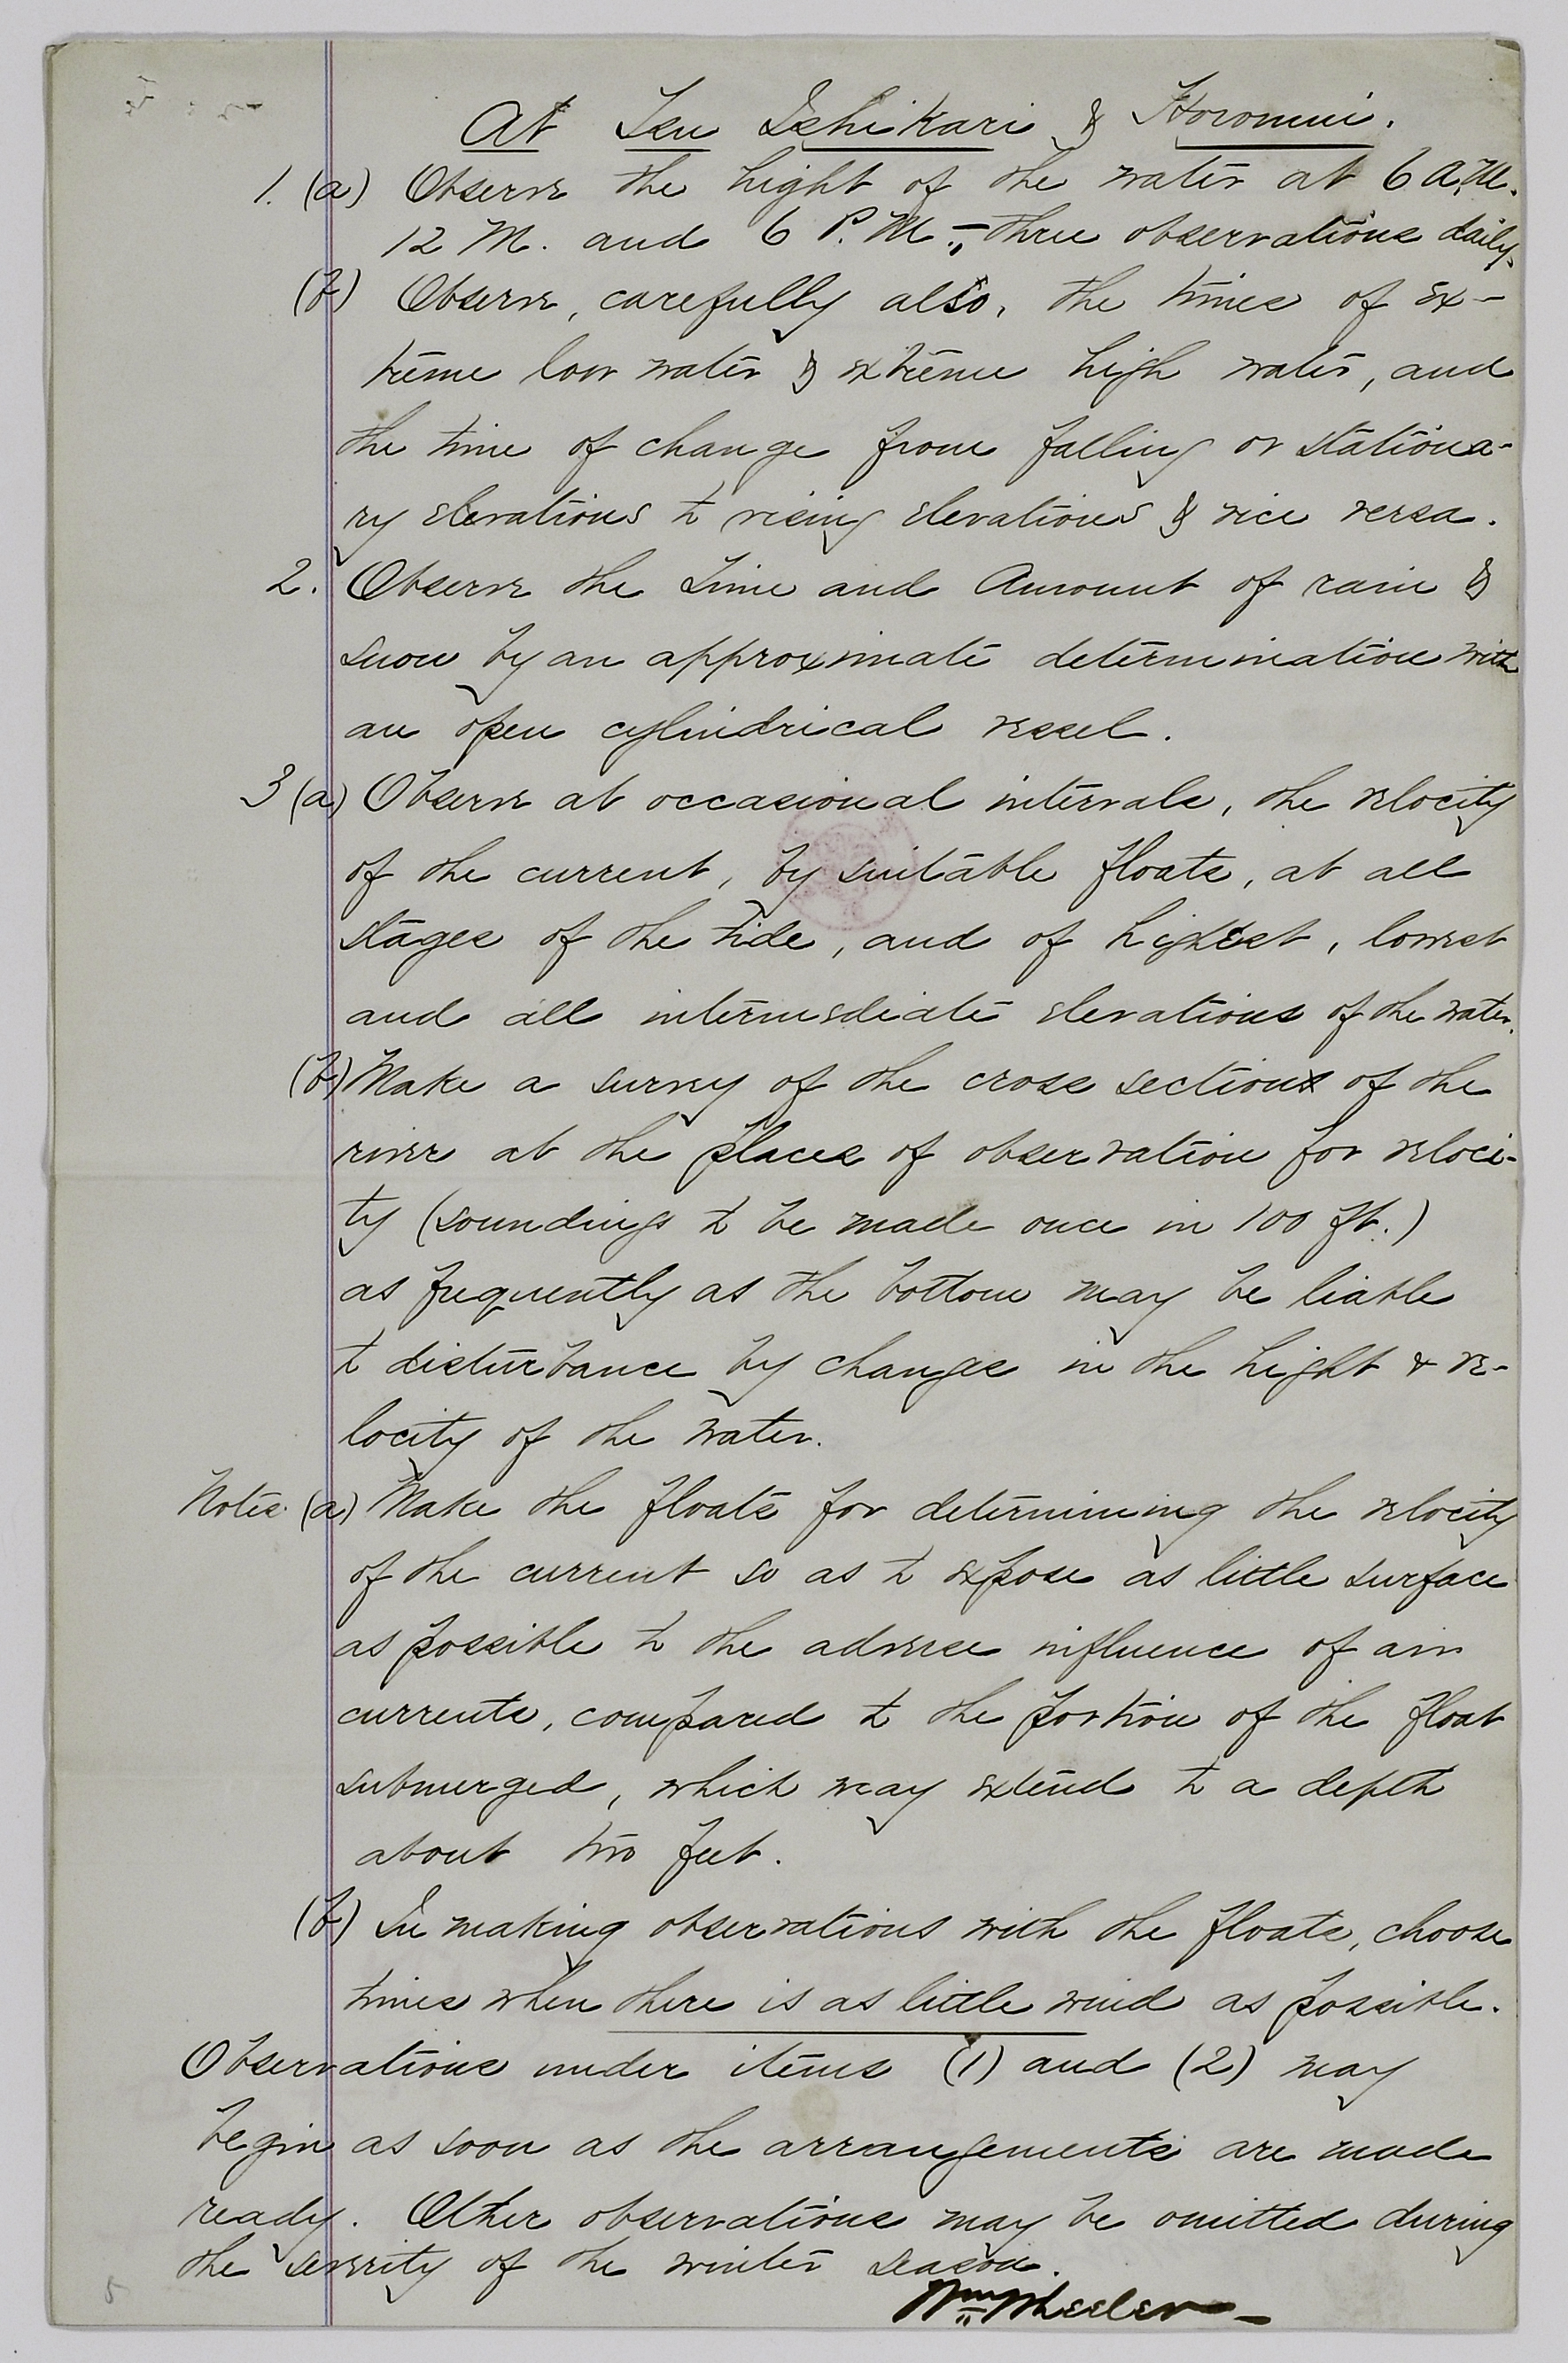 At Tsu Ishikari & Horomui.
1. (a) Observe the hight of the water at 6 A.M.
12 M. and 6 P.M. – three observations daily.
(b) Observe, carefully also, the times of ex-
treme low water & extreme high water, and
the time of change from falling or stationa-
ry elevations to rising elevations & vice versa.
2. Observe the Time and Amount of rain &
snow by an approximate determination with
an open cylindrical vessel.
3 (a) Observe at occasional intervals, the velocity
of the current, by suitable floats, at all
stages of the tide, and of highest, lowest
and all intermediate elevations of the water.
(b) Make a survey of the cross sections of the
river at the places of observation for veloci-
ty (soundings to be made once in 100 ft.)
as frequently as the bottom may be liable
to disturbance by changes in the hight & ve-
locity of the water.
Notes (a) Make the floats for determining the velocity
of the current so as to expose as little surface
as possible to the adverse influence of air
currents, compared to the portion of the float
submerged, which may extend to a depth
about two feet.
(b) In making observations with the floats, choose
times when there is as little wind as possible.
Observations under items (1) and (2) may
begin as soon as the arrangements are made
ready. Other observations may be omitted during
the severity of the winter season.
Wm Wheeler
5